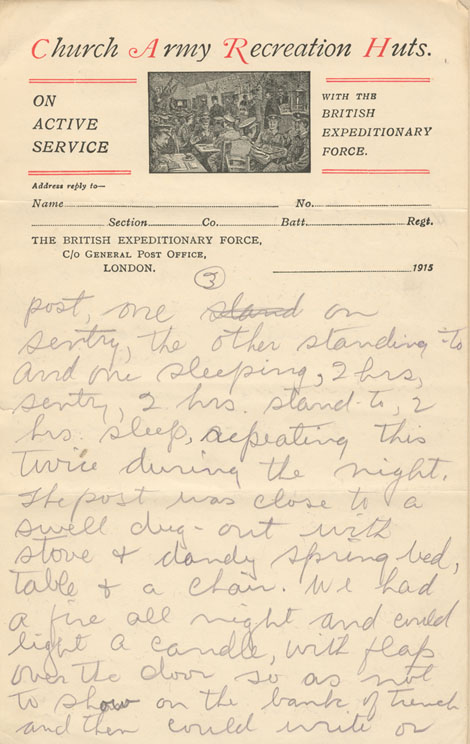 Church Army Recreation Huts.
ON
ACTIVE
SERVICE
WITH THE
BRITISH
EXPEDITIONARY
FORCE.
Address reply to—
Name No.
Section Co. Batt. Regt.
THE BRITISH EXPEDITIONARY FORCE,
C/o GENERAL POST OFFICE,
LONDON.
1915
3
post, one stand on
sentry, the other standing-to
and one sleeping, 2 hrs,
sentry, 2 hrs. stand-to, 2
hrs. sleep, repeating this
twice during the night.
The post was close to a
swell dug-out with
stove & dandy spring bed,
table & a chair. We had
a fire all night and could
light a candle, with flap
over the door so as not
to show on the bank of trench
and then could write or